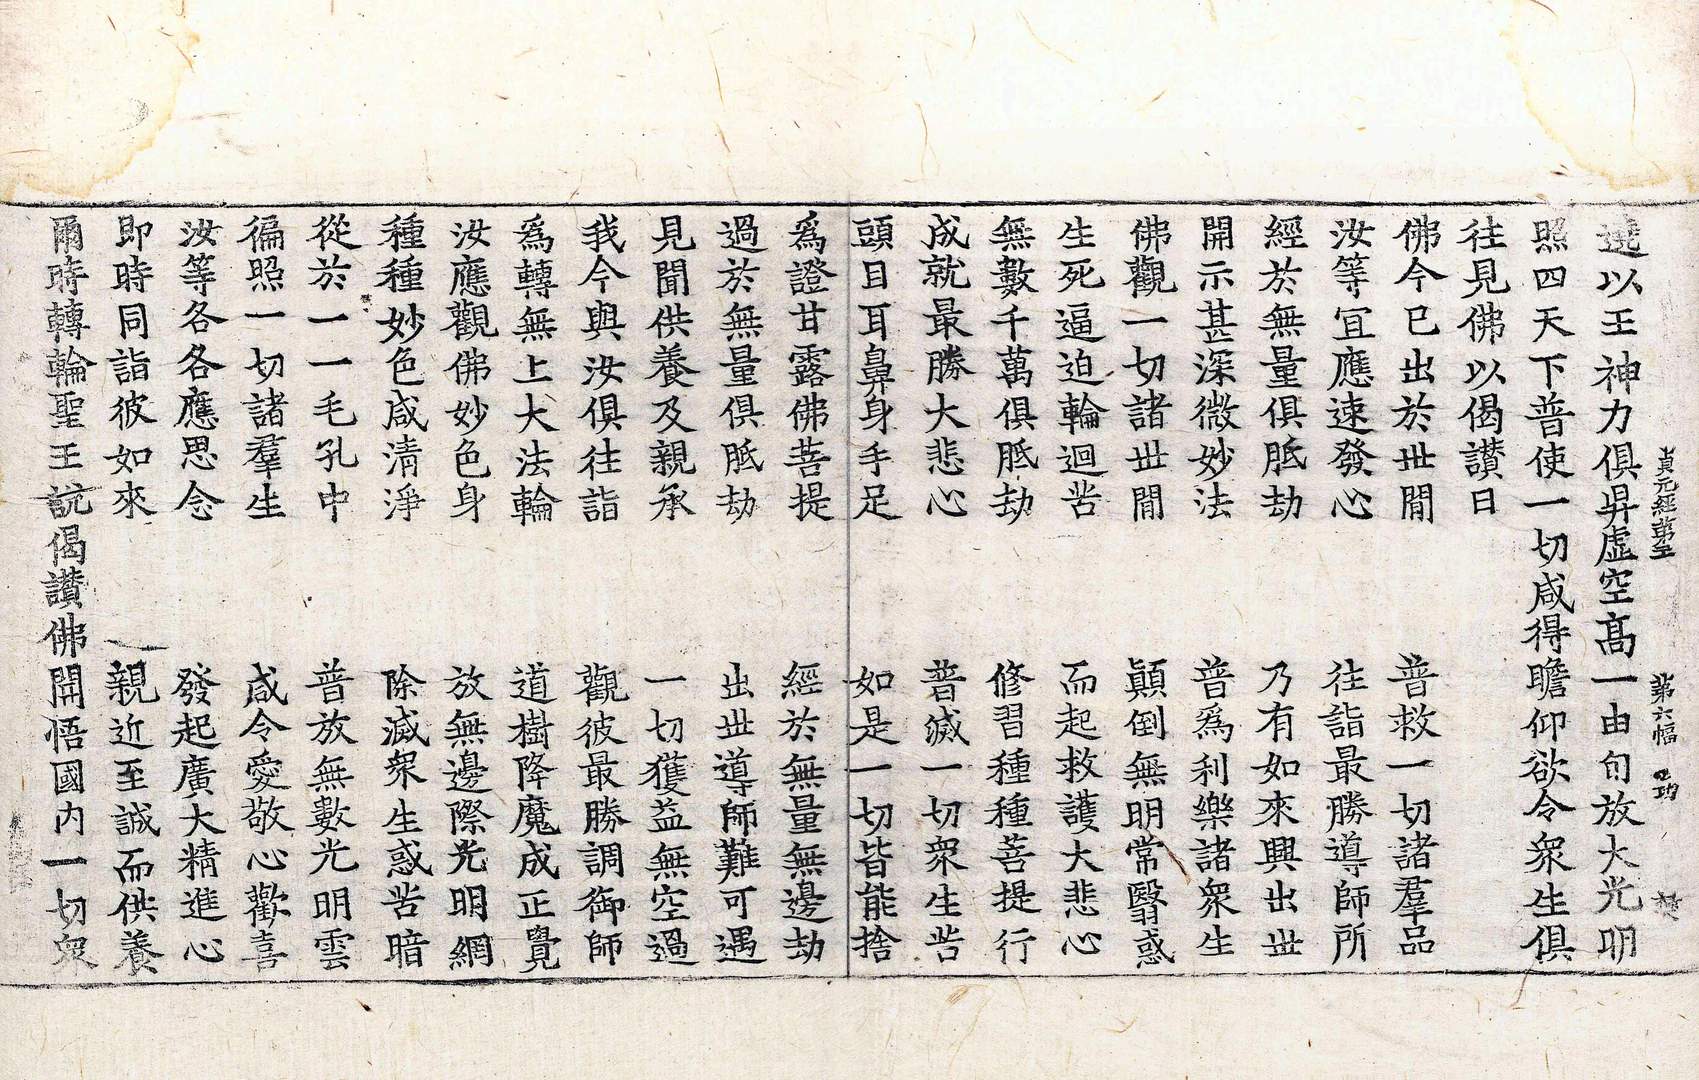 貞元經第五 第六幅 功
遶以王神力俱昇虛空高一由旬放大光明
照四天下普使一切咸得瞻仰欲令衆生俱
往見佛以偈讃曰
佛今已出於世間 普救一切諸羣品
汝等宜應速發心 往詣最勝導師所
經於無量俱胝劫 乃有如來興出世
開示甚深微妙法 普爲利樂諸衆生
佛觀一切諸世間 顚倒無明常翳惑
生死逼迫輪迴苦 而起救護大悲心
無數千萬俱胝劫 修習種種菩提行
成就最勝大悲心 普滅一切衆生苦
頭目耳鼻身手足 如是一切皆能捨
爲證甘露佛菩提 經於無量無邊劫
過於無量俱胝劫 出世導師難可遇
見聞供養及親承 一切獲益無空過
我今與汝俱往詣 觀彼最勝調御師
爲轉無上大法輪 道樹降魔成正覺
汝應觀佛妙色身 放無邊際光明網
種種妙色咸清淨 除滅衆生惑苦暗
從於一一毛孔中 普放無數光明雲
徧照一切諸羣生 咸令愛敬心歡喜
汝等各各應思念 發起廣大精進心
即時同詣彼如來 親近至誠而供養
爾時轉輪聖王說偈讃佛開悟國內一切衆